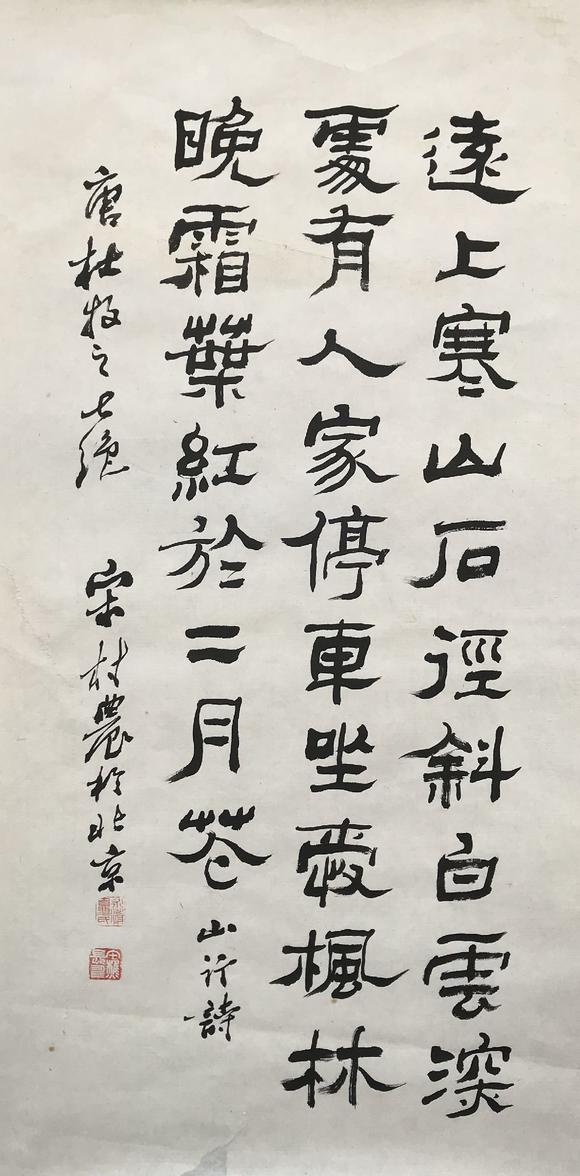 遠上寒山石徑斜白雲深
處有人家停車坐愛楓林
晚霜葉紅於二月花 山行詩
唐杜牧之七绝 宋村農於北京